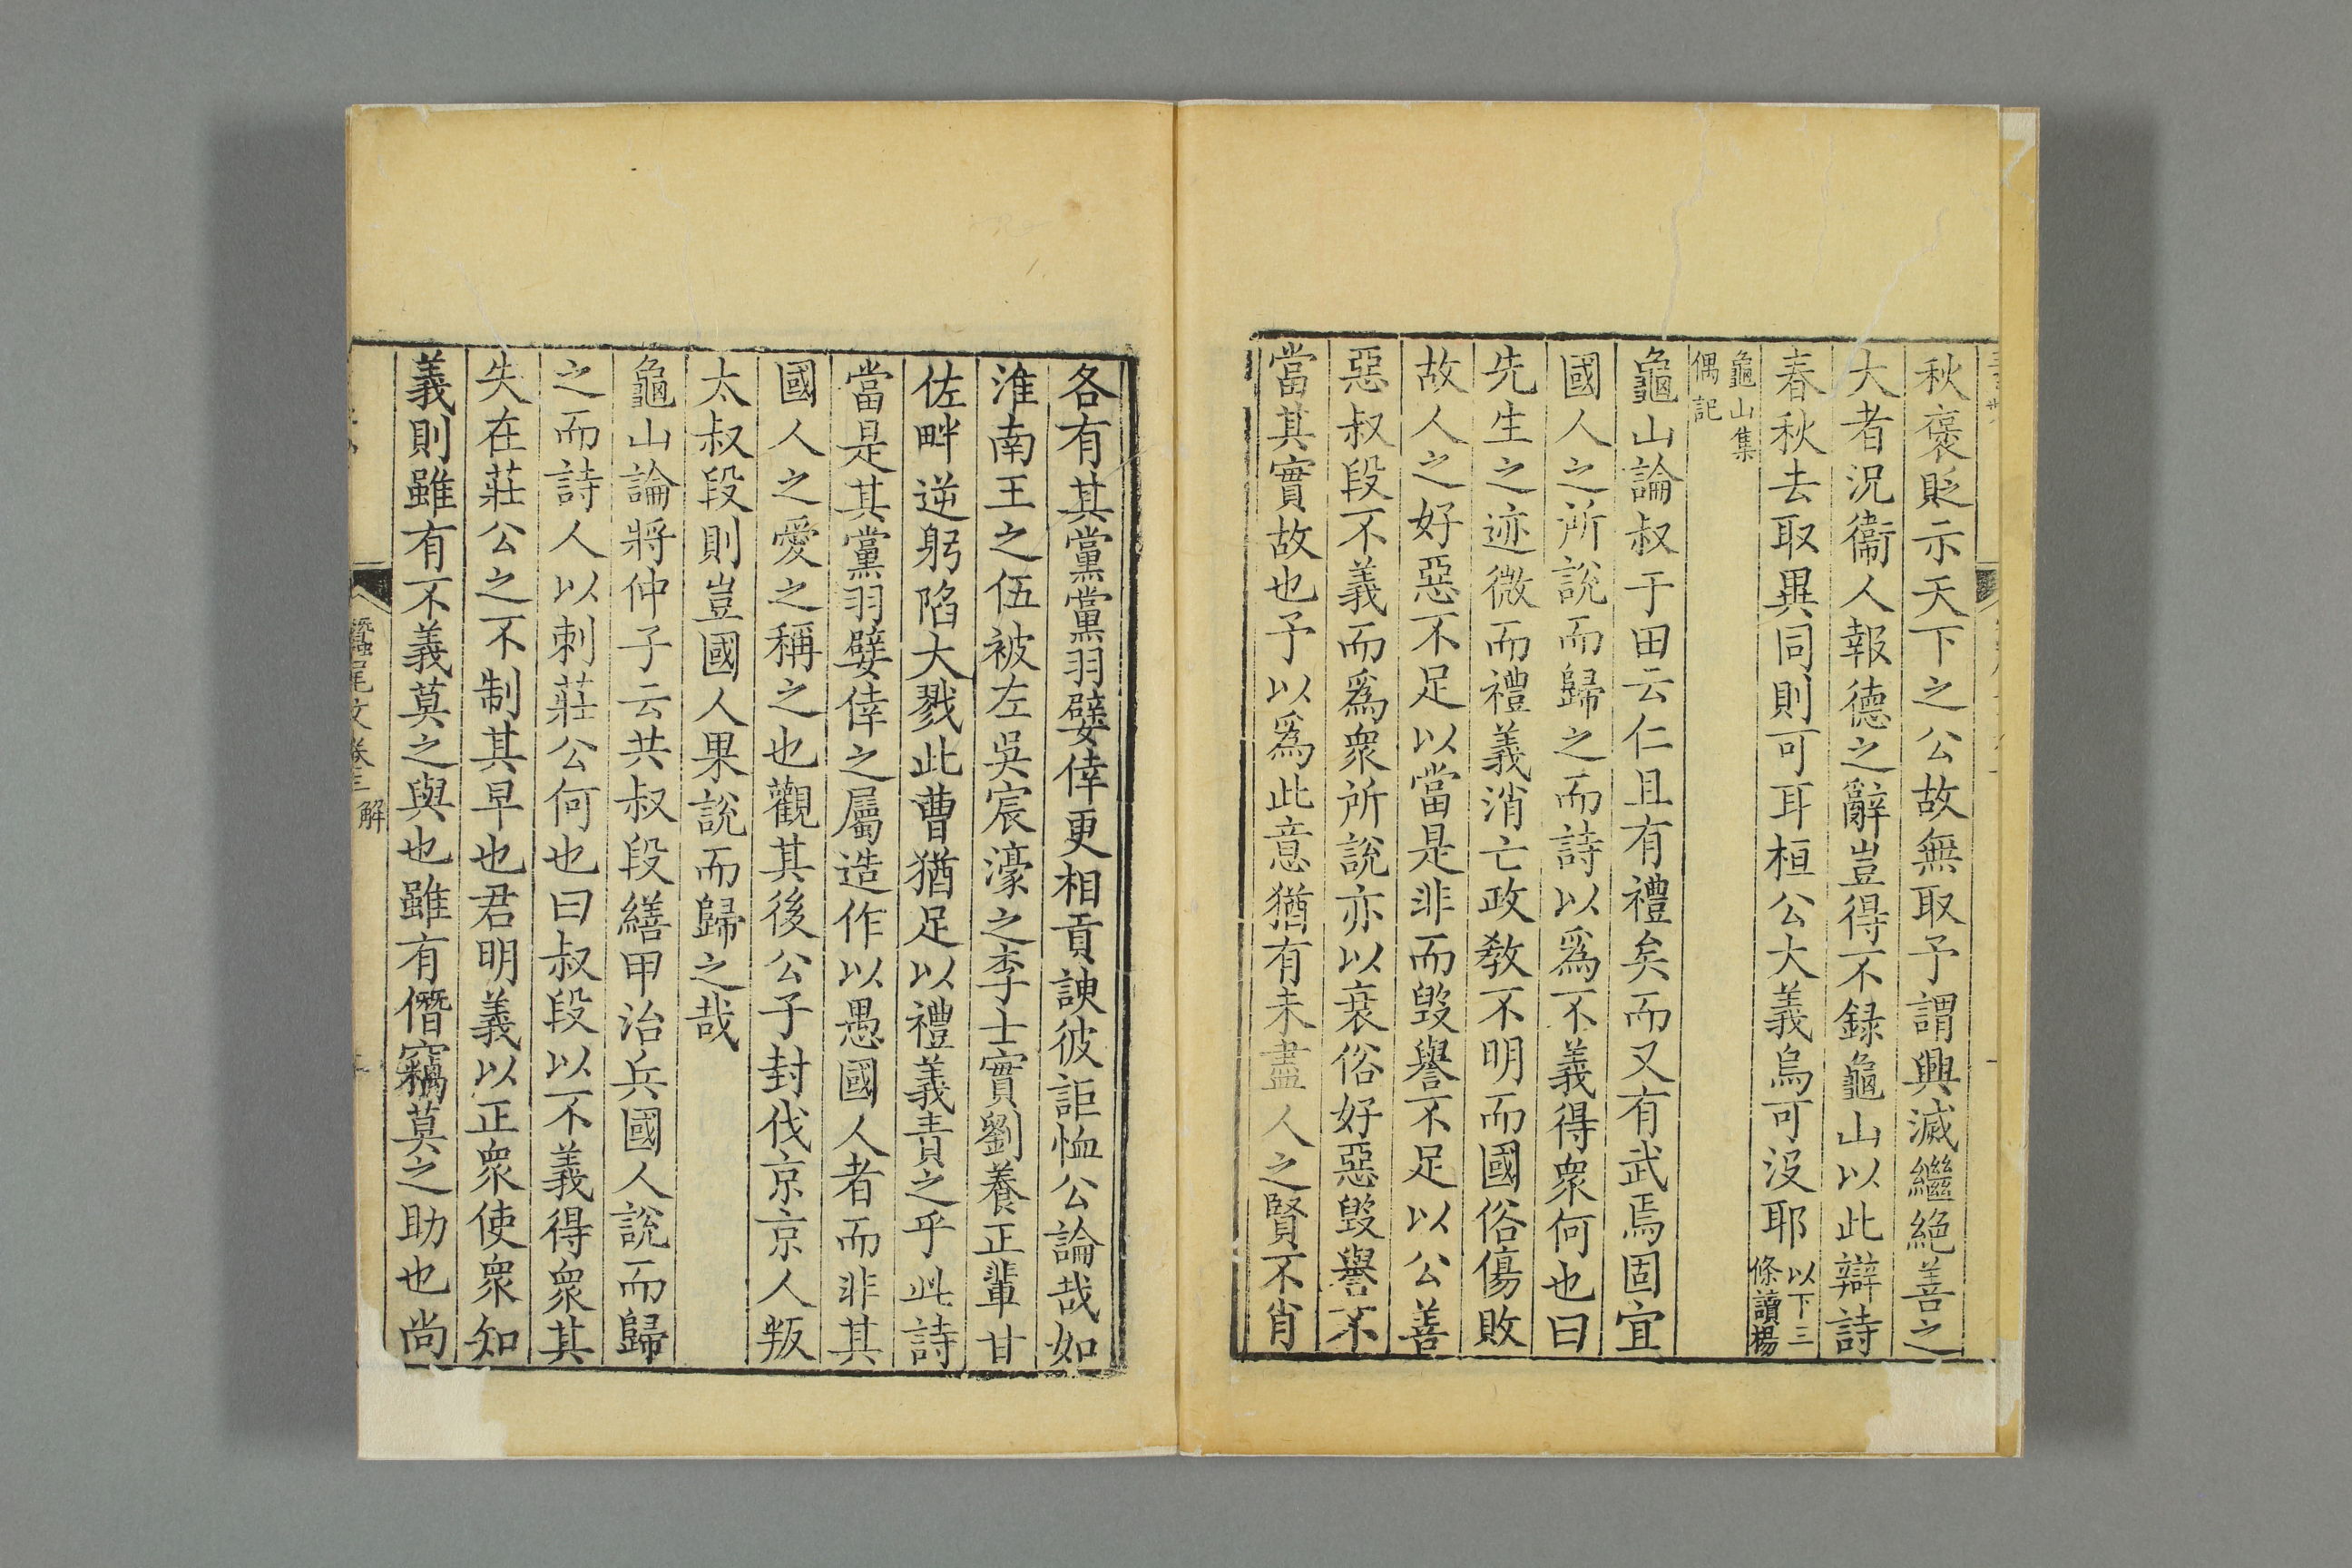 秋褒貶示天下之公故無取予謂興滅繼絕善之
大者況衞人報德之辭豈得不録龜山以此辯詩
春秋去取異同則可耳桓公大義烏可沒耶以下三條讀楊
龜山集偶記
龜山論叔于田云仁且有禮矣而又有武焉固宜
國人之所說而歸之而詩以爲不義得衆何也曰
先生之迹微而禮義消亡政敎不明而國俗傷敗
故人之好惡不足以當是非而毀譽不足以公善
惡叔段不義而爲衆所說亦以衰俗好惡毀譽不
當其實故也予以爲此意猶有未盡人之賢不肖
各有其黨黨羽嬖倖更相貢諛彼詎恤公論哉如
淮南王之伍被左吳宸濠之李士實劉養正輩甘
佐畔逆躬陷大戮此曹猶足以禮義責之乎此詩
當是其黨羽嬖倖之屬造作以愚國人者而非其
國人之愛之稱之也觀其後公子封伐京京人叛
太叔段則豈國人果說而歸之哉
龜山論將仲子云共叔段繕甲治兵國人說而歸
之而詩人以刺莊公何也曰叔段以不義得衆其
失在莊公之不制其早也君明義以正衆使衆知
義則雖有不義莫之與也雖有僭竊莫之助也尚
蠶尾文卷三 解